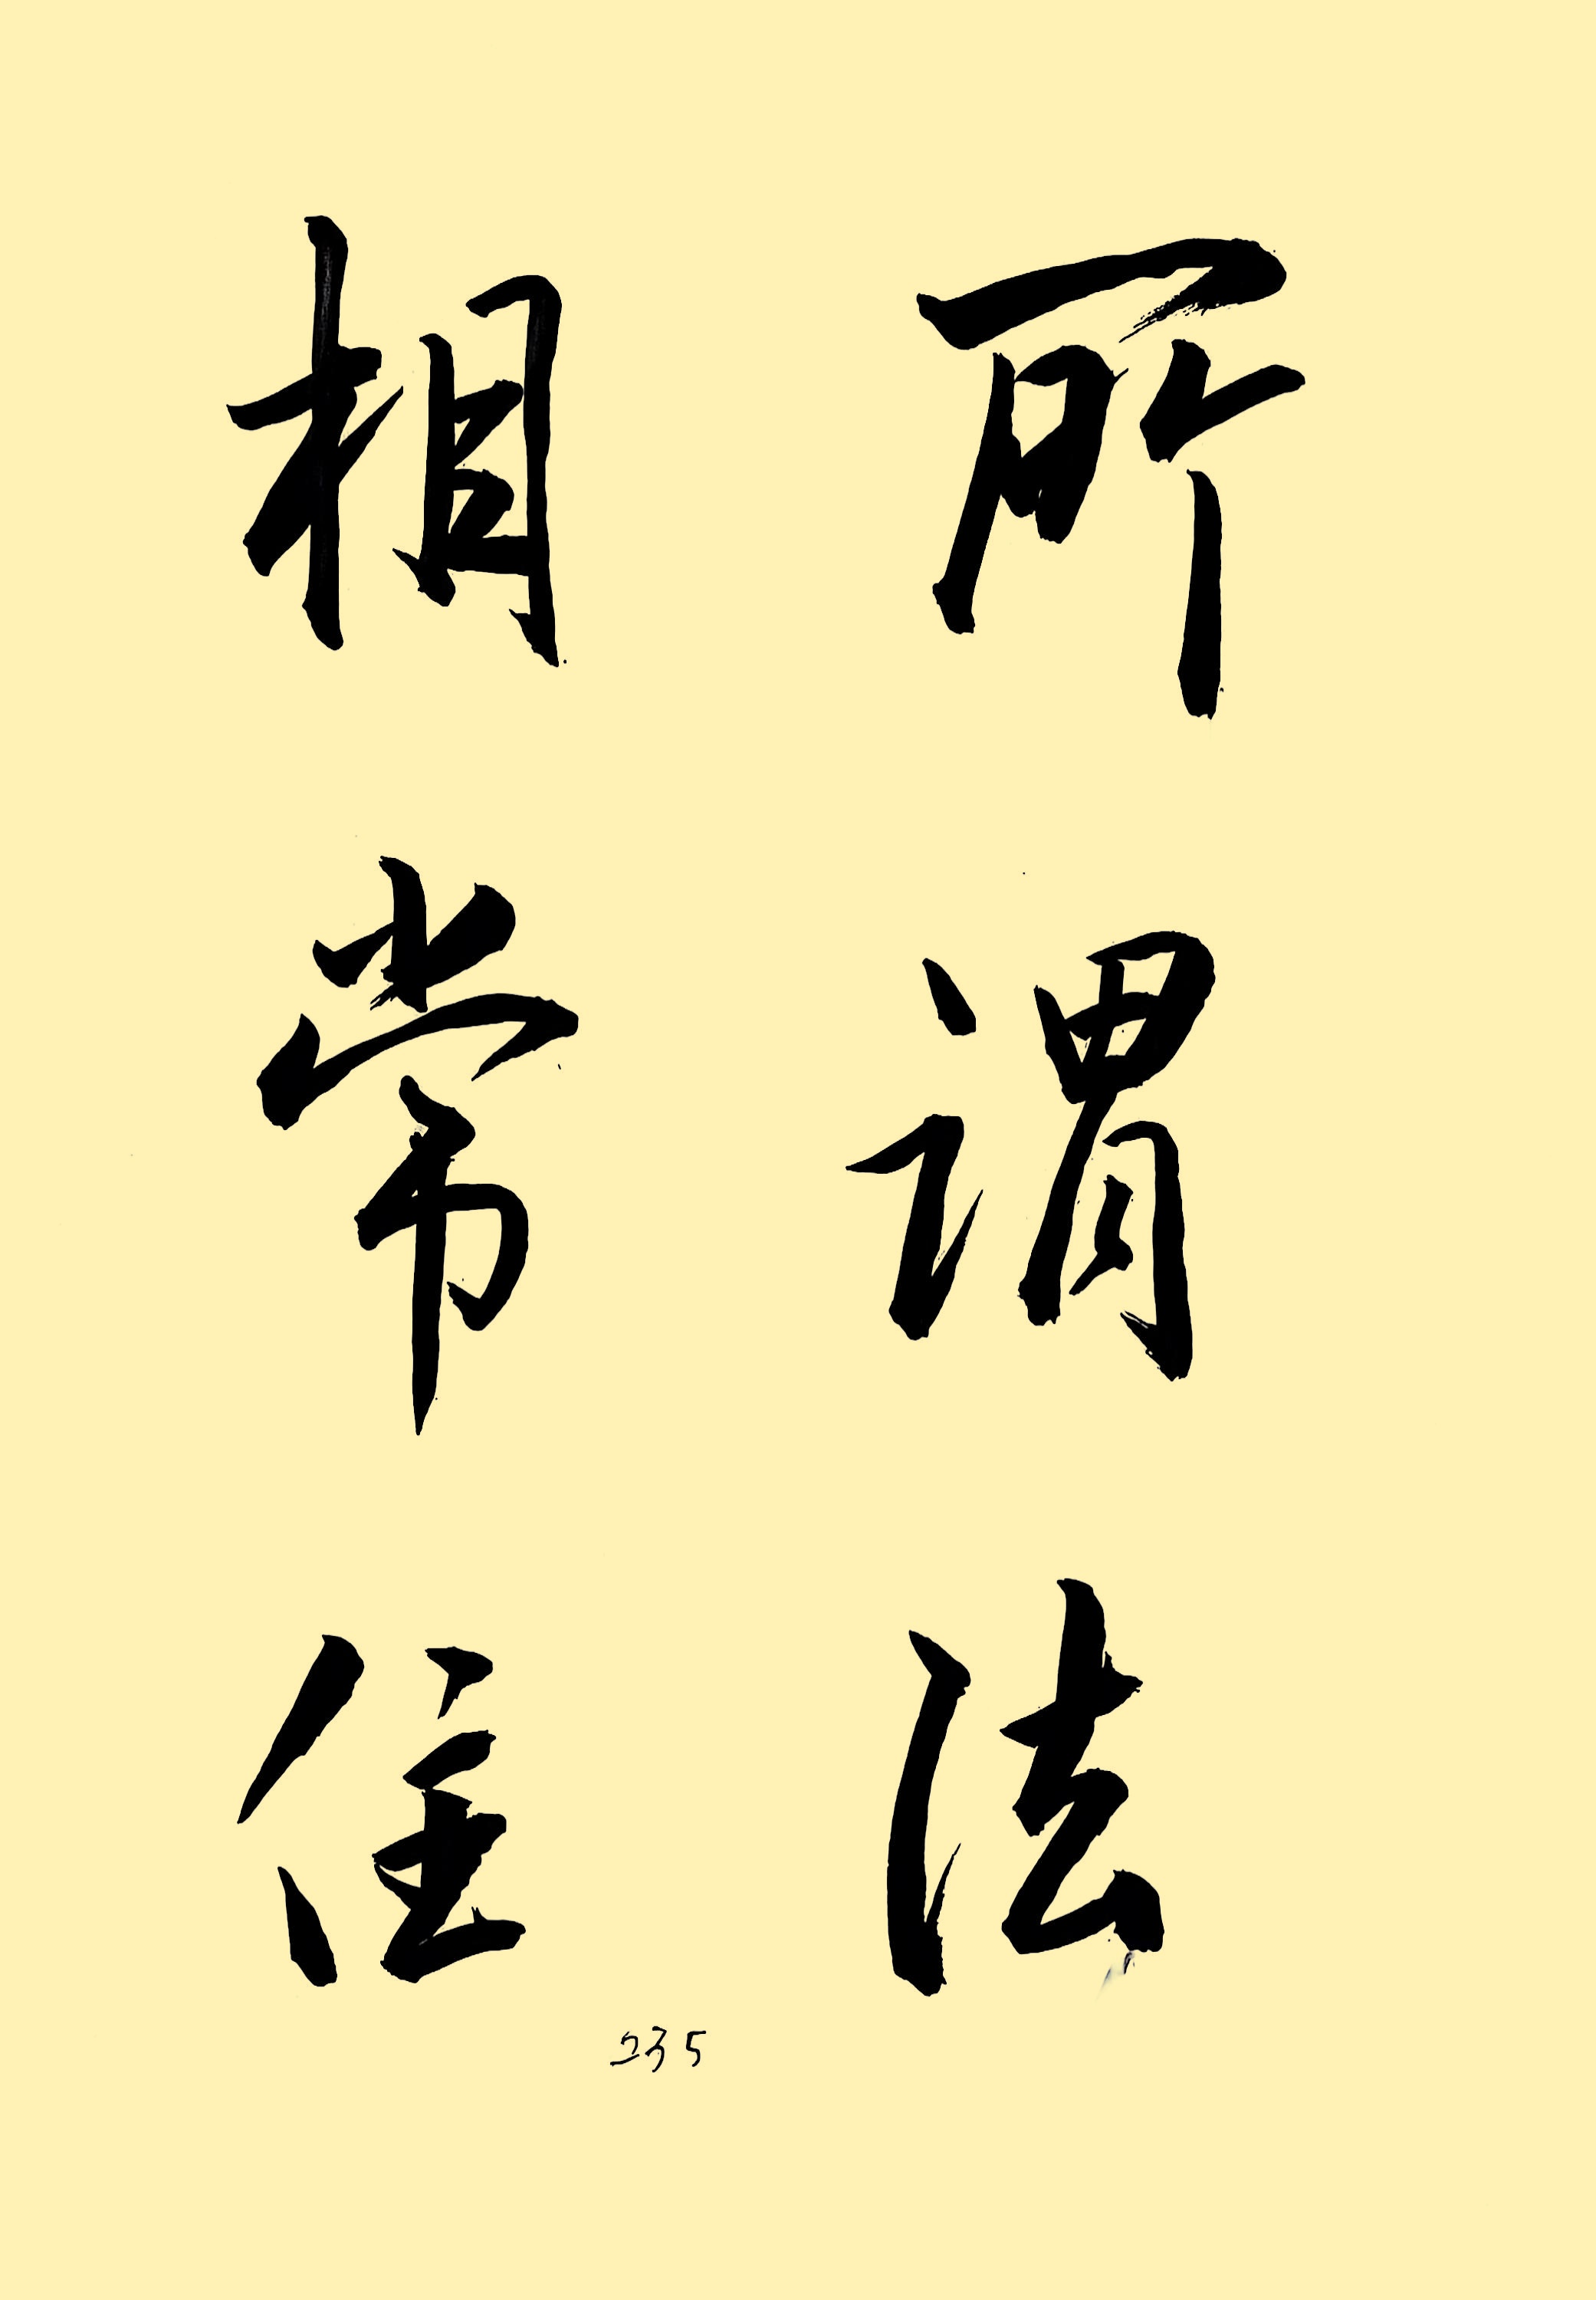 所谓法
相常住
235